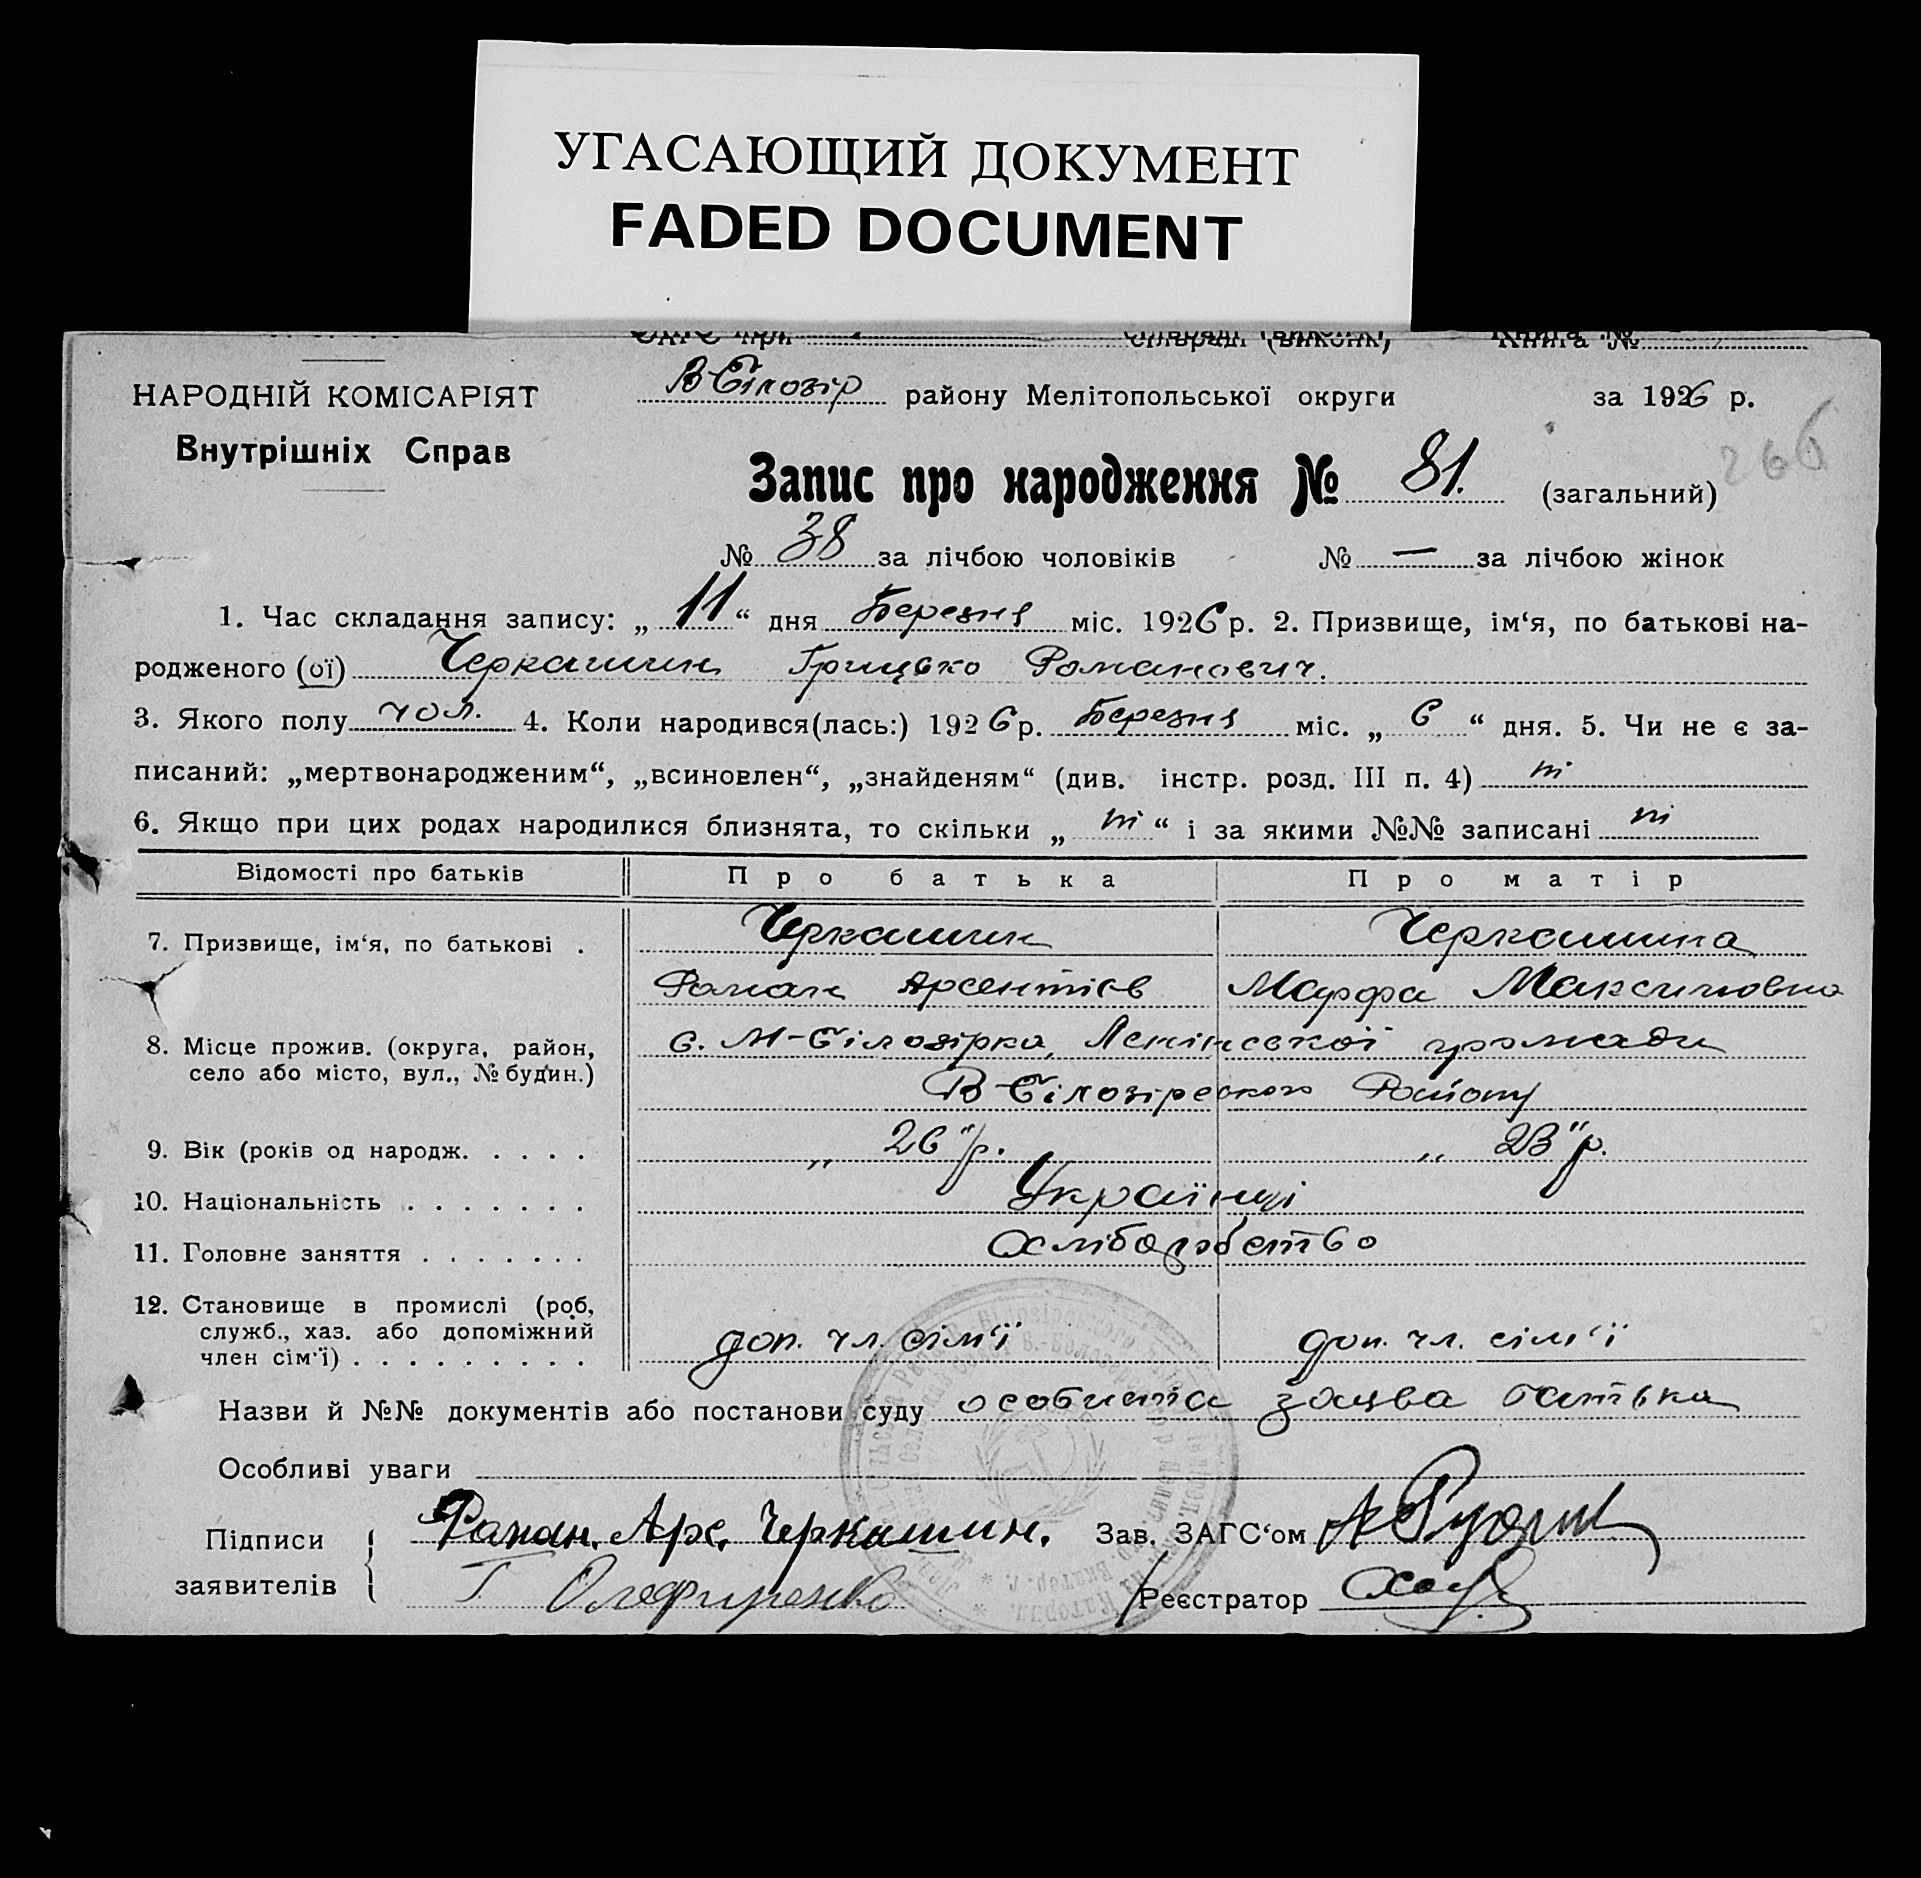 УГАСАЮЩИЙ ДОКУМЕНТ
FADED DOCUMENT
ЗАГС при сільраді (викон.) Книга №
В Білозір району Мелітопольської округи за 1926 р.
НАРОДНІЙ КОМІСАРІЯТ
Внутрішніх Справ
266
Запис про народження № 81. (загальний)
№ 38 за лічбою чоловіків № — за лічбою жінок
1. Час складання запису: „ 11 “ дня Березня міс. 1926 р. 2. Призвище, ім‘я, по батькові на-
родженого (ої) Черкашин Грицько Романович.
3. Якого полу чол. 4. Коли народився(лась:) 1926 р. Березня міс. „ 6 “ дня. 5. Чи не є за-
писаний: „мертвонародженим“, „всиновлен“, „знайденям“ (див. інстр. розд. III п. 4) ні
6. Якщо при цих родах народилися близнята, то скільки „ ні “ і за якими №№ записані ні
Відомості про батьків Про батька Про матір
7. Призвище, ім‘я, по батькові . Черкашин Черкашина
Роман Арсентіев Марфа Максимовна
8. Місце прожив. (округа, район, с. М-Білозірка, Ленінської громади
село або місто, вул., № будин.) В Білозірского Району
9. Вік (років од народж. . . . . „ 26 "р. „ 23 "р.
10. Національність . . . . . . . Українці
11. Головне заняття . . . . . . . Хліборобство
12. Становище в промислі (роб,
служб., хаз. або допоміжний доп. чл. сім‘ї доп. чл. сім‘ї
член сім‘ї) . . . . . . . . .
Назви й №№ документів або постанови суду особиста заява батька
Особливі уваги
Підписи Роман. Арс. Черкашин. Зав. ЗАГС‘ом
заявителів Г Олефиренко Реєстратор